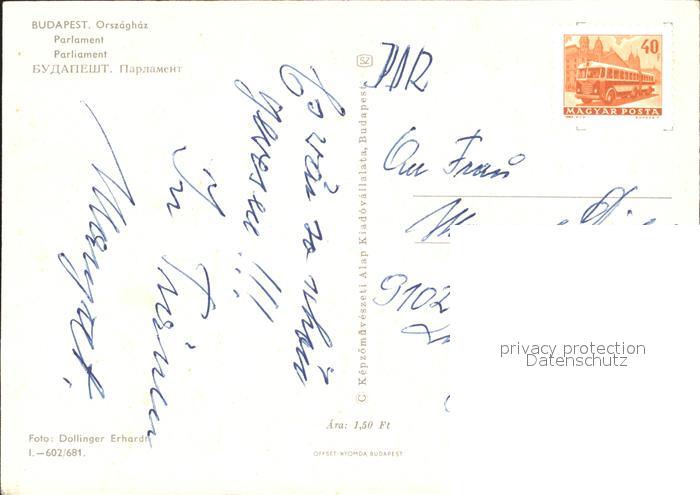 BUDAPEST. Országház
Parlament
Parliament
БУДАПЕШТ. Парламент
Es war so schön
gewesen !!!
In Tränen
SZ
© Képzőművészeti Alap Kiadóvállalata, Budapest
DDR
40
MAGYAR POSTA
An Frau
9102
privacy protection
Datenschutz
Foto: Dollinger Erhardt
I.—602/681.
Ára: 1,50 Ft
OFFSET-NYOMDA BUDAPEST